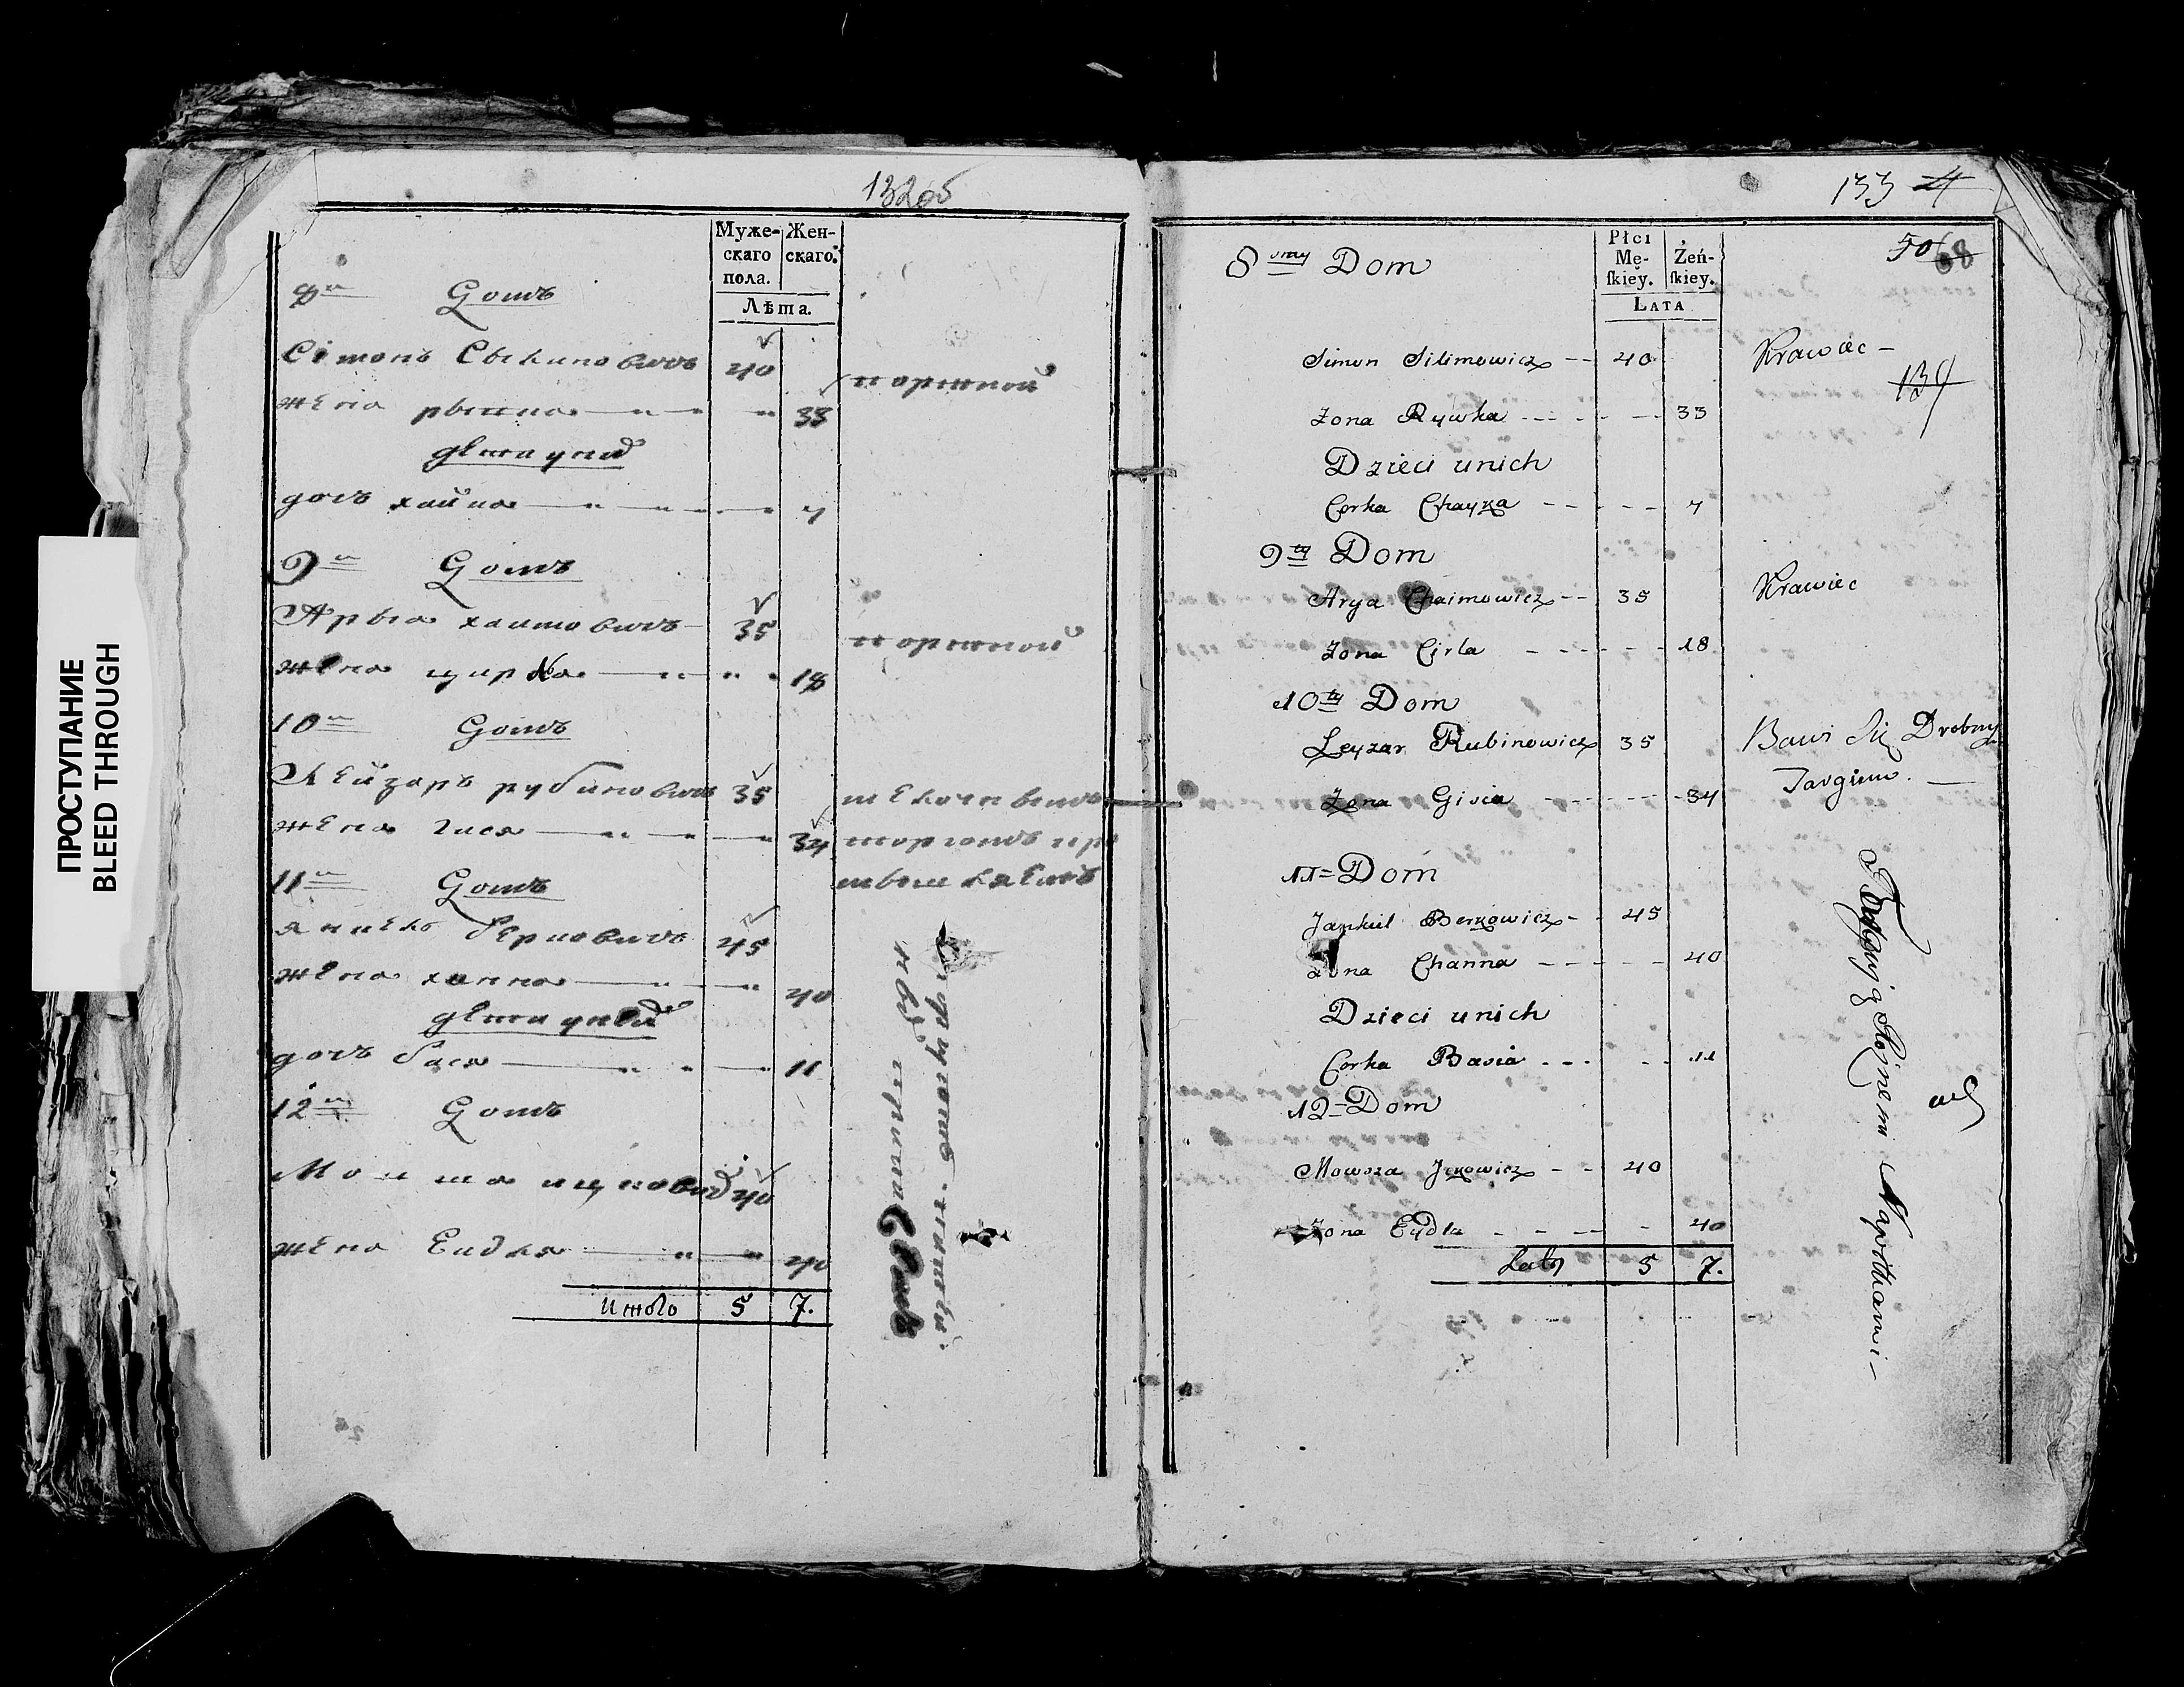 ПРОСТУПАНИЕ
BLEED THROUGH
132об
Муже-
скаго
пола.
Жен-
скаго.
Лѣта.
8й Домъ
Сімонъ 40
портной
жена 33
дети у них
дочь хайка 7
9й Домъ
Арья хаимовичъ 35
портной
жена цирла 18
10й Домъ
Лейзаръ рубиновичъ 35
жена гися 34
11й Домъ
янкель берковичъ 45
жена ханна 40
дети у них
дочь бася 11
12й Домъ
Мовша ицковичъ 40
жена Ейдля 40
Итого 5 7.
133 4
50 68
139
Płci
Mę-
ſkiey.
Żeń-
ſkiey.
LATA
8my Dom
Simon Silimowicz 40 Krawiec
Zona Rywka 33
Dzieci unich
Corka Chayka 7
9ty Dom
Arya Chaimowicz 35 Krawiec
Zona Cirla 18
10ty Dom
Leyzar Rubinowicz 35 Bawi Się Drobnym
Targiem.
Zona Gisia 34
11 Dom
Jankiel Berkowicz 45
Zona Channa 40
Dzieci unich
Corka Basia 11
12 Dom
Mowsza Jckowicz 40
Zona Eydla 40
Laty 5 7.